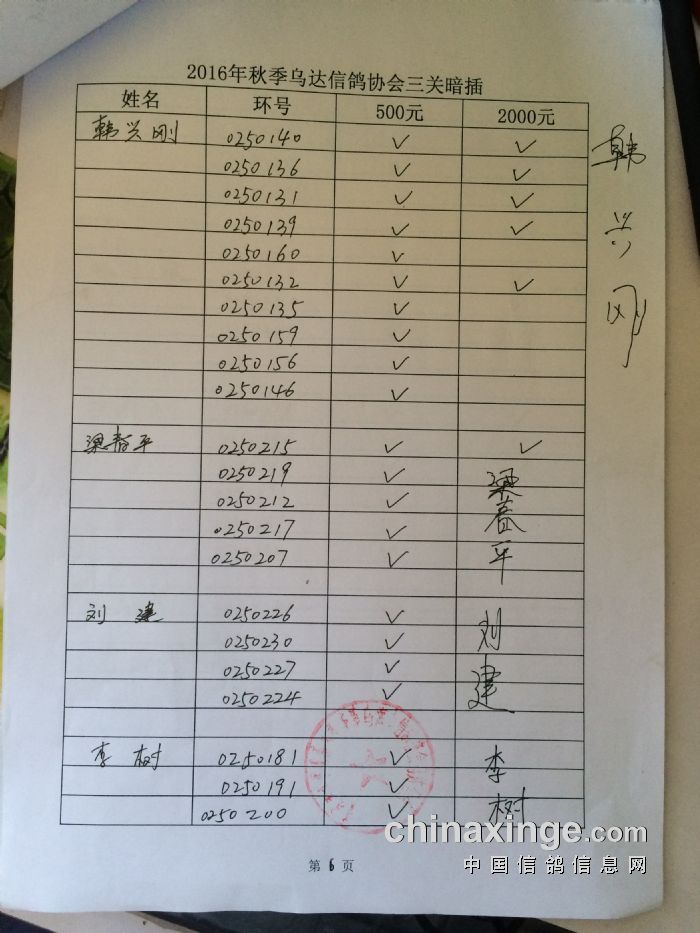 2016年秋季乌达信鸽协会三关暗插
姓名 环号 500元 2000元
韩兴刚 0250140 ✓ ✓
0250136 ✓ ✓
0250131 ✓ ✓
0250139 ✓ ✓
0250160 ✓
0250132 ✓ ✓
0250135 ✓
0250159 ✓
0250156 ✓
0250146 ✓
韩兴刚
梁春平 0250215 ✓ ✓
0250219 ✓
0250212 ✓
0250217 ✓
0250207 ✓
梁春平
刘建 0250226 ✓
0250230 ✓
0250227 ✓
0250224 ✓
刘建
李树 0250181 ✓
0250191 ✓
0250200 ✓
李树
第6页
chinaxinge.com
中国信鸽信息网